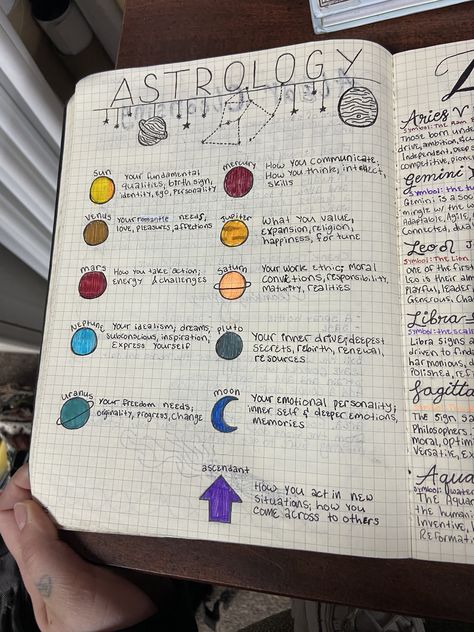 ASTROLOGY
Sun
Your fundamental
qualities, birth sign,
identity, ego, personality
mercury
How you communicate,
How you think, intellect,
skills
Venus
Your romantic needs,
love, pleasures, affections
Jupiter
What you value,
expansion, religion,
happiness, fortune
mars
How you take action;
energy & challenges
Saturn
Your work ethic; moral
convictions, responsibility,
maturity, realities
Neptune
Your idealism; dreams,
subconscious, inspiration,
Express yourself
Pluto
Your inner drive; deepest
secrets, rebirth, renewal,
resources
uranus
Your freedom needs;
originality, progress, change
moon
Your emotional personality;
inner self & deeper emotions,
memories
ascendant
How you act in new
situations; how you
come across to others
Aries
Symbol: The Ram
Those born und
drive, ambition,
Independent,
competitive,
Gemini
Symbol: the
Gemini is a soc
mingle w/ the
Adaptable,
Connected,
Leo
Symbol: The Lion
One of the first
Leo is their
Playful, leader
Generous,
Libra
Symbol: the scal
Libra signs
driven to find
harmonious,
Polished,
Sagitta
The sign
Philosophers,
moral, optim
Versatile,
Aqua
Symbol:
The Aqua
the human
Inventive,
Reformat